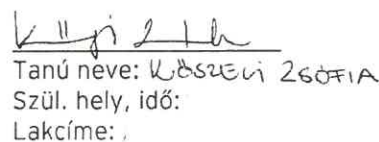 Tanú neve: KŐSZEGI ZSÓFIA
Szül. hely, idő:
Lakcíme: